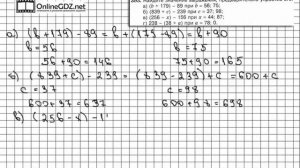 OnlineGDZ.net
а) (b + 179) - 89 при b = 56; 75;
б) (839 + c) - 239 при c = 37; 98;
в) (256 - x) - 156 при x = 44; 87;
а) (b + 179) - 89 = b + (179 - 89) = b + 90
b = 56 b = 75
56 + 90 = 146 75 + 90 = 165
б) (839 + c) - 239 = (839 - 239) + c = 600 + c
c = 37 c = 98
600 + 37 = 637 600 + 98 = 698
в) (256 - x) - 1